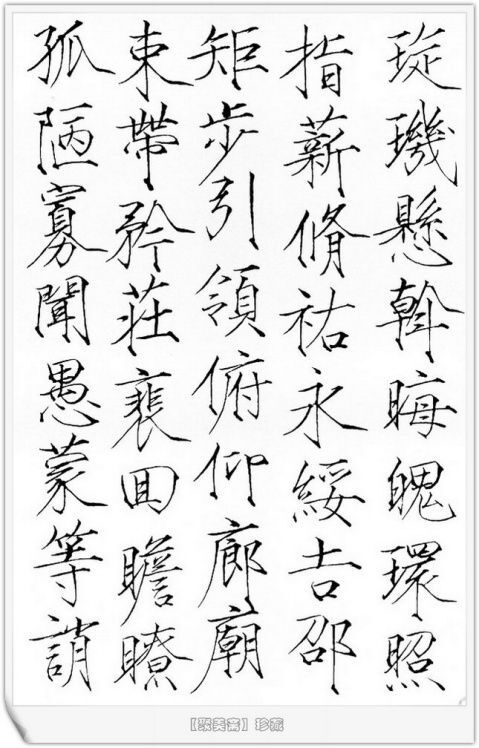 琁璣懸斡晦魄環照
指薪脩祜永綏吉邵
矩步引領俯仰廊廟
束帶矜莊裵回瞻瞭
孤陋寡聞愚蒙等誚
【聚美斋】珍藏